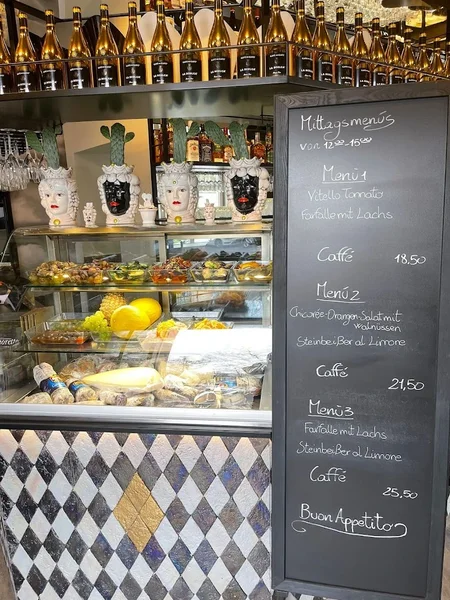 Mittagsmenüs
von 12⁰⁰-15⁰⁰
Menü 1
Vitello Tonnato
Farfalle mit Lachs
Caffé 18,50
Menü 2
Chicorée-Orangen-Salat mit
Walnüssen
Steinbeißer al Limone
Caffé
21,50
Menü 3
Farfalle mit Lachs
Steinbeißer al Limone
Caffé
25,50
Buon Appetito